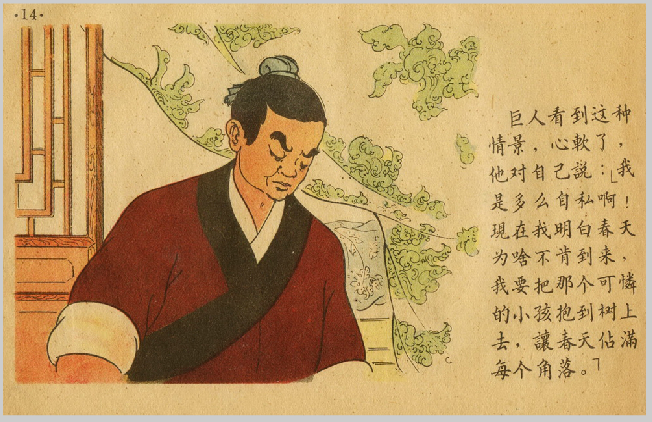 ·14·
巨人看到这种
情景，心軟了，
他对自己説：「我
是多么自私啊！
現在我明白春天
为啥不肯到来，
我要把那个可憐
的小孩抱到树上
去，讓春天佔滿
每个角落。」